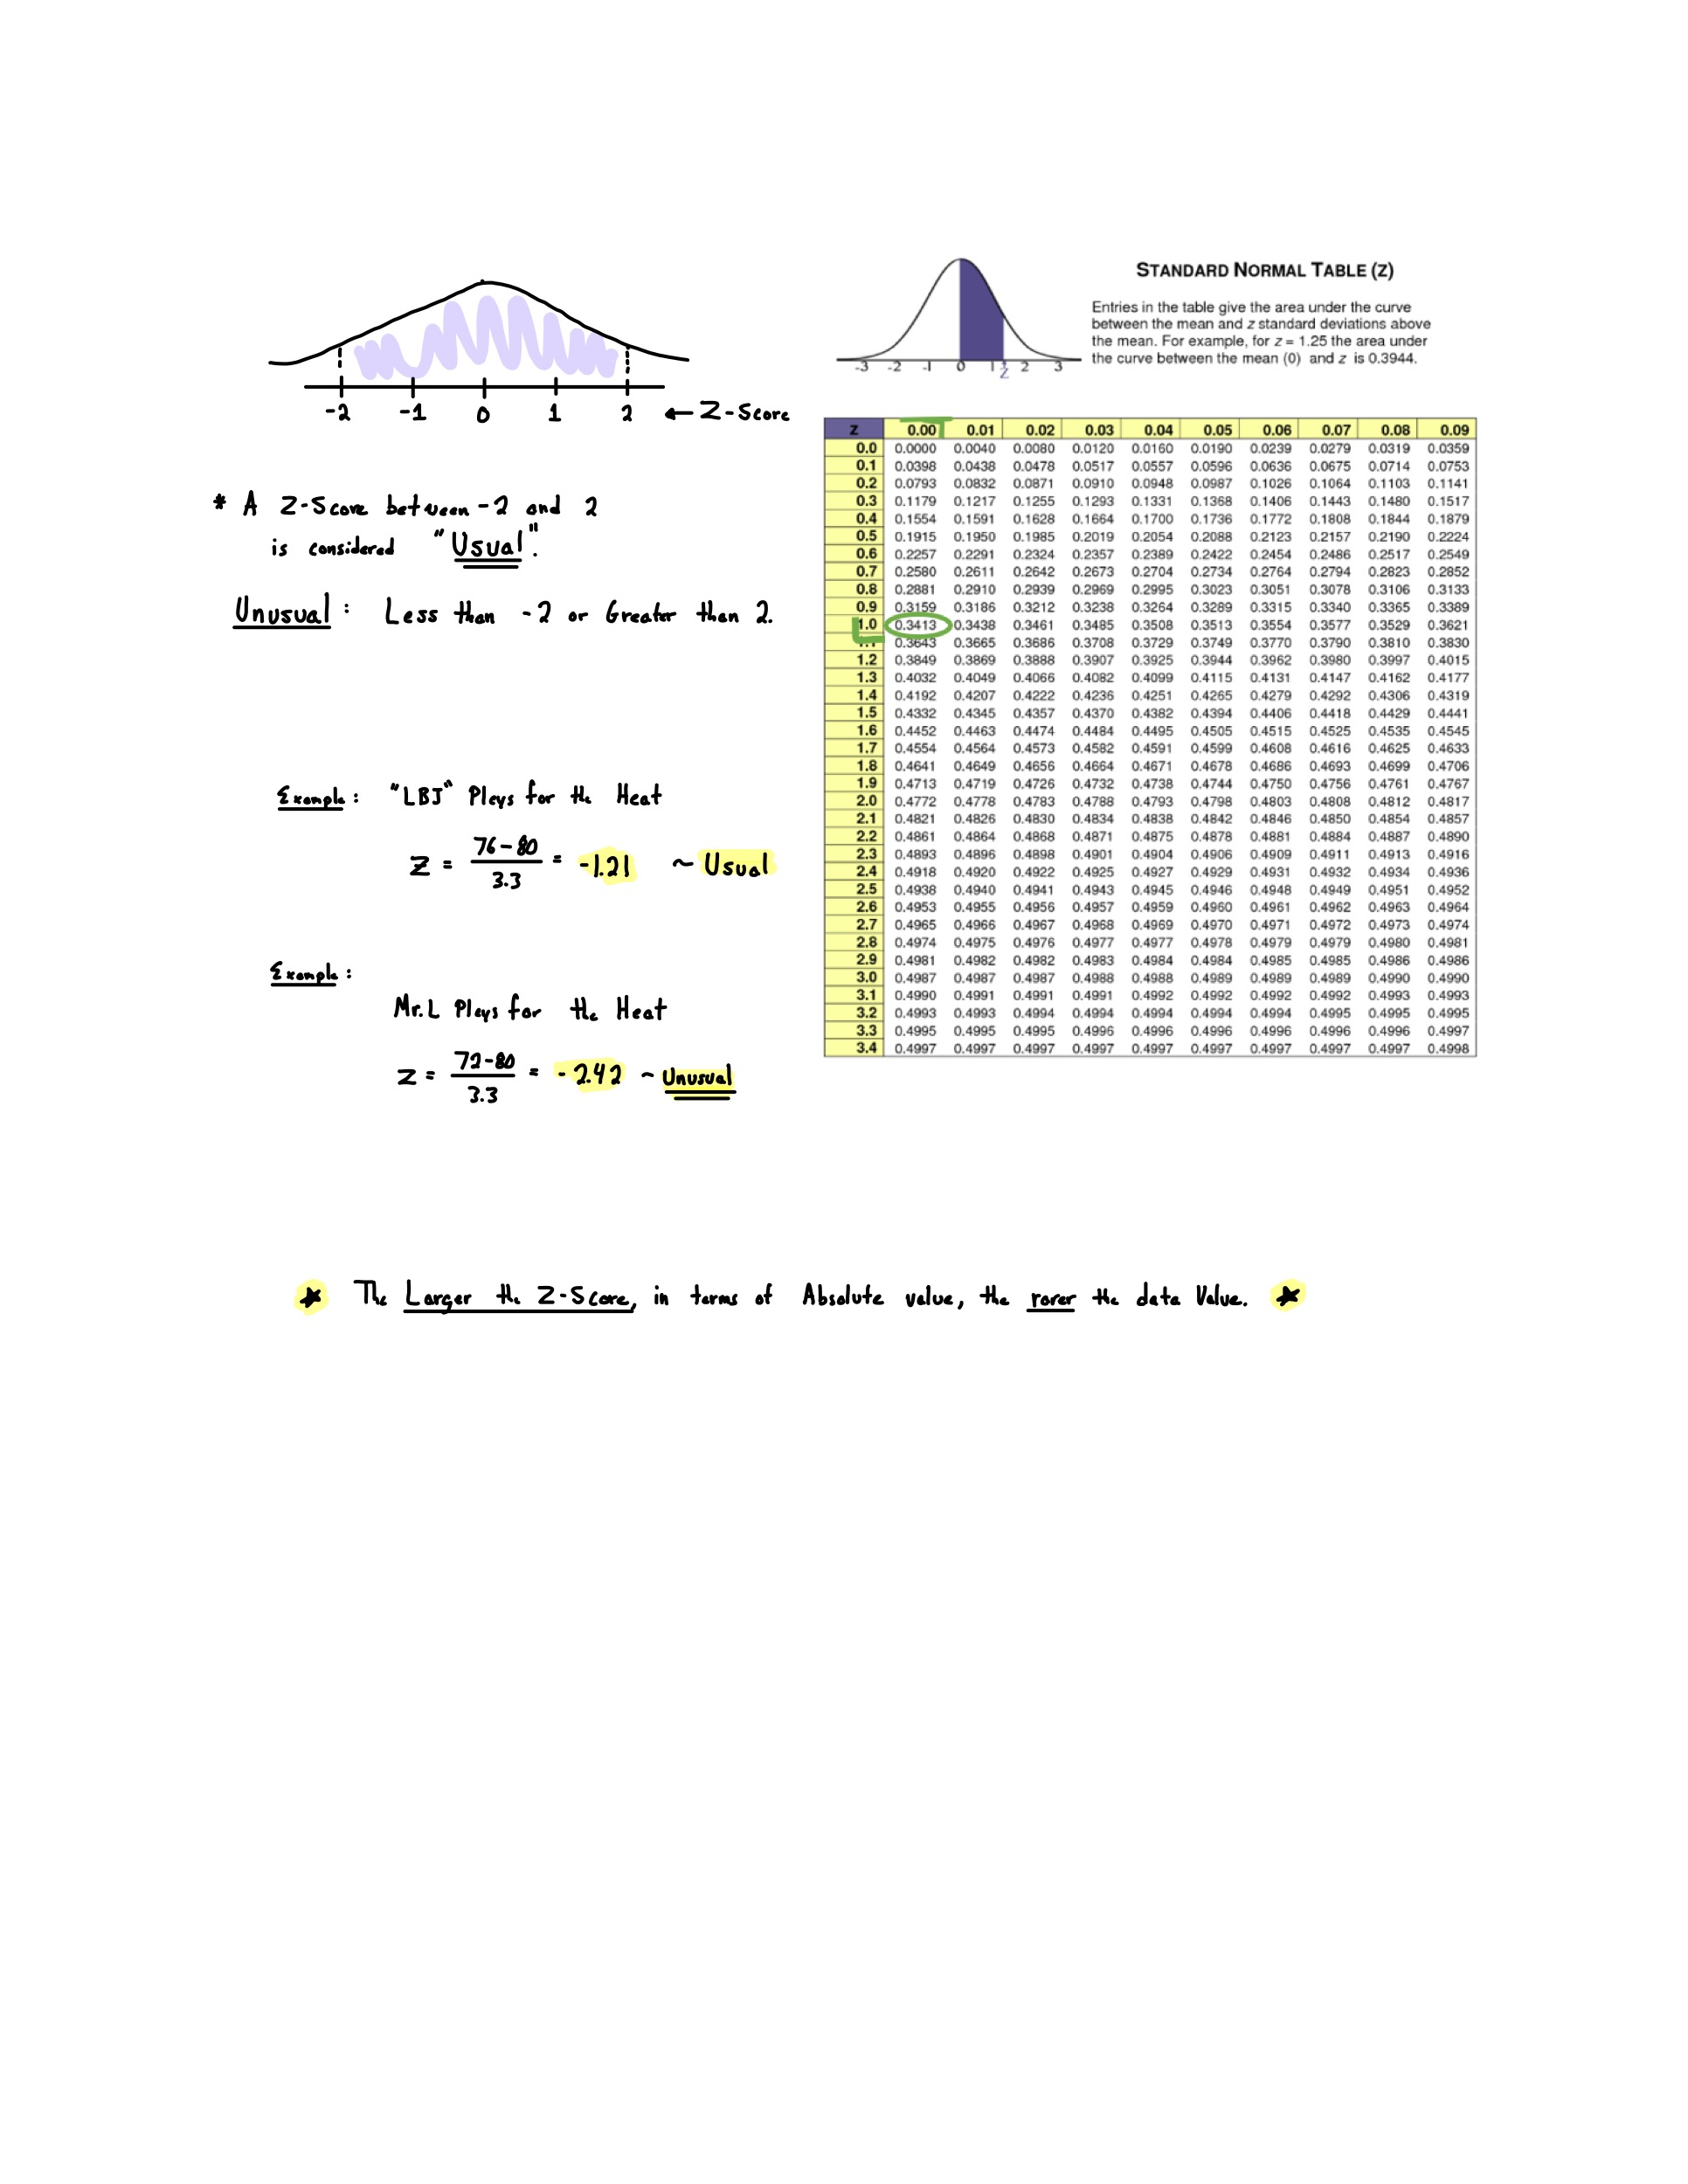 -2 -1 0 1 2 ← Z-Score
* A Z-Score between -2 and 2
is considered "Usual".
Unusual: Less than -2 or Greater than 2.
Example: "LBJ" Plays for the Heat
Z = 76-80 / 3.3 = -1.21 ~ Usual
Example:
Mr. L Plays for the Heat
Z = 72-80 / 3.3 = -2.42 ~ Unusual
STANDARD NORMAL TABLE (Z)
Entries in the table give the area under the curve
between the mean and z standard deviations above
the mean. For example, for z = 1.25 the area under
the curve between the mean (0) and z is 0.3944.
-3 -2 -1 0 1 z 2 3
z 0.00 0.01 0.02 0.03 0.04 0.05 0.06 0.07 0.08 0.09
0.0 0.0000 0.0040 0.0080 0.0120 0.0160 0.0190 0.0239 0.0279 0.0319 0.0359
0.1 0.0398 0.0438 0.0478 0.0517 0.0557 0.0596 0.0636 0.0675 0.0714 0.0753
0.2 0.0793 0.0832 0.0871 0.0910 0.0948 0.0987 0.1026 0.1064 0.1103 0.1141
0.3 0.1179 0.1217 0.1255 0.1293 0.1331 0.1368 0.1406 0.1443 0.1480 0.1517
0.4 0.1554 0.1591 0.1628 0.1664 0.1700 0.1736 0.1772 0.1808 0.1844 0.1879
0.5 0.1915 0.1950 0.1985 0.2019 0.2054 0.2088 0.2123 0.2157 0.2190 0.2224
0.6 0.2257 0.2291 0.2324 0.2357 0.2389 0.2422 0.2454 0.2486 0.2517 0.2549
0.7 0.2580 0.2611 0.2642 0.2673 0.2704 0.2734 0.2764 0.2794 0.2823 0.2852
0.8 0.2881 0.2910 0.2939 0.2969 0.2995 0.3023 0.3051 0.3078 0.3106 0.3133
0.9 0.3159 0.3186 0.3212 0.3238 0.3264 0.3289 0.3315 0.3340 0.3365 0.3389
1.0 0.3413 0.3438 0.3461 0.3485 0.3508 0.3513 0.3554 0.3577 0.3529 0.3621
1.1 0.3643 0.3665 0.3686 0.3708 0.3729 0.3749 0.3770 0.3790 0.3810 0.3830
1.2 0.3849 0.3869 0.3888 0.3907 0.3925 0.3944 0.3962 0.3980 0.3997 0.4015
1.3 0.4032 0.4049 0.4066 0.4082 0.4099 0.4115 0.4131 0.4147 0.4162 0.4177
1.4 0.4192 0.4207 0.4222 0.4236 0.4251 0.4265 0.4279 0.4292 0.4306 0.4319
1.5 0.4332 0.4345 0.4357 0.4370 0.4382 0.4394 0.4406 0.4418 0.4429 0.4441
1.6 0.4452 0.4463 0.4474 0.4484 0.4495 0.4505 0.4515 0.4525 0.4535 0.4545
1.7 0.4554 0.4564 0.4573 0.4582 0.4591 0.4599 0.4608 0.4616 0.4625 0.4633
1.8 0.4641 0.4649 0.4656 0.4664 0.4671 0.4678 0.4686 0.4693 0.4699 0.4706
1.9 0.4713 0.4719 0.4726 0.4732 0.4738 0.4744 0.4750 0.4756 0.4761 0.4767
2.0 0.4772 0.4778 0.4783 0.4788 0.4793 0.4798 0.4803 0.4808 0.4812 0.4817
2.1 0.4821 0.4826 0.4830 0.4834 0.4838 0.4842 0.4846 0.4850 0.4854 0.4857
2.2 0.4861 0.4864 0.4868 0.4871 0.4875 0.4878 0.4881 0.4884 0.4887 0.4890
2.3 0.4893 0.4896 0.4898 0.4901 0.4904 0.4906 0.4909 0.4911 0.4913 0.4916
2.4 0.4918 0.4920 0.4922 0.4925 0.4927 0.4929 0.4931 0.4932 0.4934 0.4936
2.5 0.4938 0.4940 0.4941 0.4943 0.4945 0.4946 0.4948 0.4949 0.4951 0.4952
2.6 0.4953 0.4955 0.4956 0.4957 0.4959 0.4960 0.4961 0.4962 0.4963 0.4964
2.7 0.4965 0.4966 0.4967 0.4968 0.4969 0.4970 0.4971 0.4972 0.4973 0.4974
2.8 0.4974 0.4975 0.4976 0.4977 0.4977 0.4978 0.4979 0.4979 0.4980 0.4981
2.9 0.4981 0.4982 0.4982 0.4983 0.4984 0.4984 0.4985 0.4985 0.4986 0.4986
3.0 0.4987 0.4987 0.4987 0.4988 0.4988 0.4989 0.4989 0.4989 0.4990 0.4990
3.1 0.4990 0.4991 0.4991 0.4991 0.4992 0.4992 0.4992 0.4992 0.4993 0.4993
3.2 0.4993 0.4993 0.4994 0.4994 0.4994 0.4994 0.4994 0.4995 0.4995 0.4995
3.3 0.4995 0.4995 0.4995 0.4996 0.4996 0.4996 0.4996 0.4996 0.4996 0.4997
3.4 0.4997 0.4997 0.4997 0.4997 0.4997 0.4997 0.4997 0.4997 0.4997 0.4998
* The Larger the Z-Score, in terms of Absolute value, the rarer the data Value. *